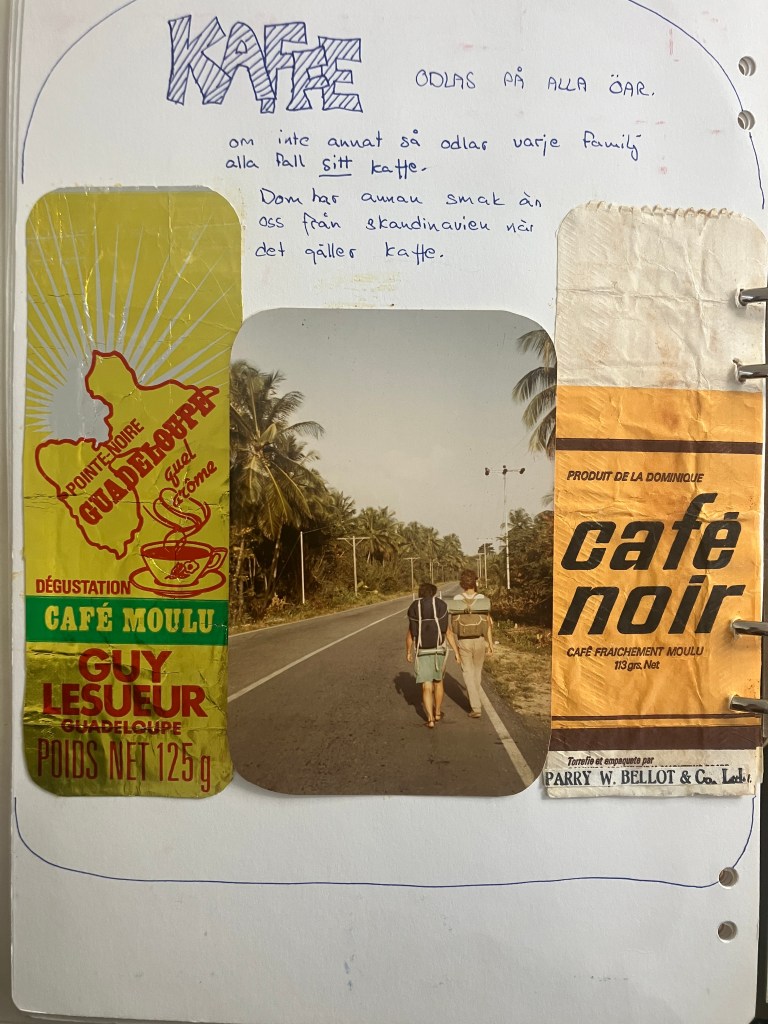 KAFFE ODLAS PÅ ALLA ÖAR.
om inte annat så odlar varje familj
alla fall sitt kaffe.
Dom har annan smak än
oss från skandinavien när
det gäller kaffe.
POINTE-NOIRE
GUADELOUPE
quel
arôme
DÉGUSTATION
CAFÉ MOULU
GUY
LESUEUR
GUADELOUPE
POIDS NET 125g
PRODUIT DE LA DOMINIQUE
café
noir
CAFÉ FRAICHEMENT MOULU
113 grs. Net
Torrefie et empaquete par
PARRY W. BELLOT & Co. Ltd.